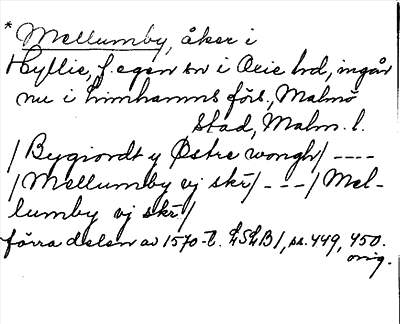 * Mellumby, åker i
Hyllie, f. egen sn i Oxie hd, ingår
nu i Limhamns förs., Malmö
stad, Malm. l.
/ Bygiordt y Østre wongh/ ----
/ Mellumby ej skr/ --- / Mel-
lumby ej skr./
förra delen av 1570-t. LSLB/, ss. 449, 450.
orig.